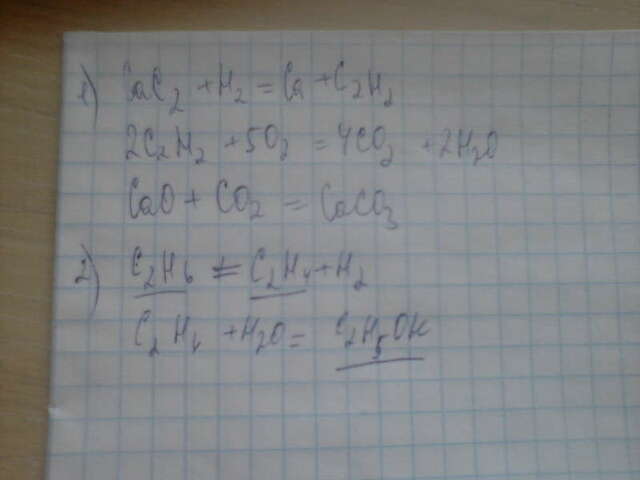 1) CaC2 + H2 = Ca + C2H2
2C2H2 + 5O2 = 4CO2 + 2H2O
CaO + CO2 = CaCO3
2) C2H6 = C2H4 + H2
C2H4 + H2O = C2H5OH